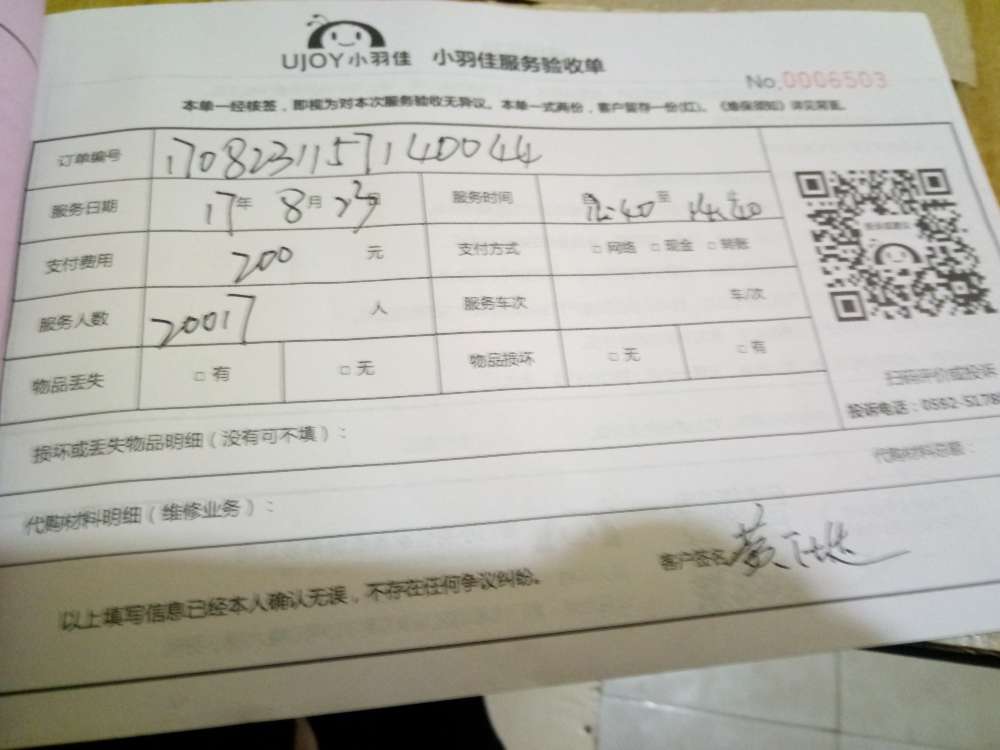 UJOY小羽佳 小羽佳服务验收单
No.0006503
本单一经核签，即视为对本次服务验收无异议。本单一式两份，客户留存一份(红)。《维保须知》详见背面。
订单编号 170823115714​0044
服务日期 17年 8月 23日 服务时间 自12:40至 14:40
支付费用 200 元 支付方式 □ 网络 □ 现金 □ 转账
服务人数 20017 人 服务车次 车/次
物品丢失 □ 有 □ 无 物品损坏 □ 无 □ 有
扫码评价或投诉
投诉电话：0592-5178
损坏或丢失物品明细（没有可不填）：
代购材料明细（维修业务）： 代购材料总额：
以上填写信息已经本人确认无误，不存在任何争议纠纷。 客户签名 黄